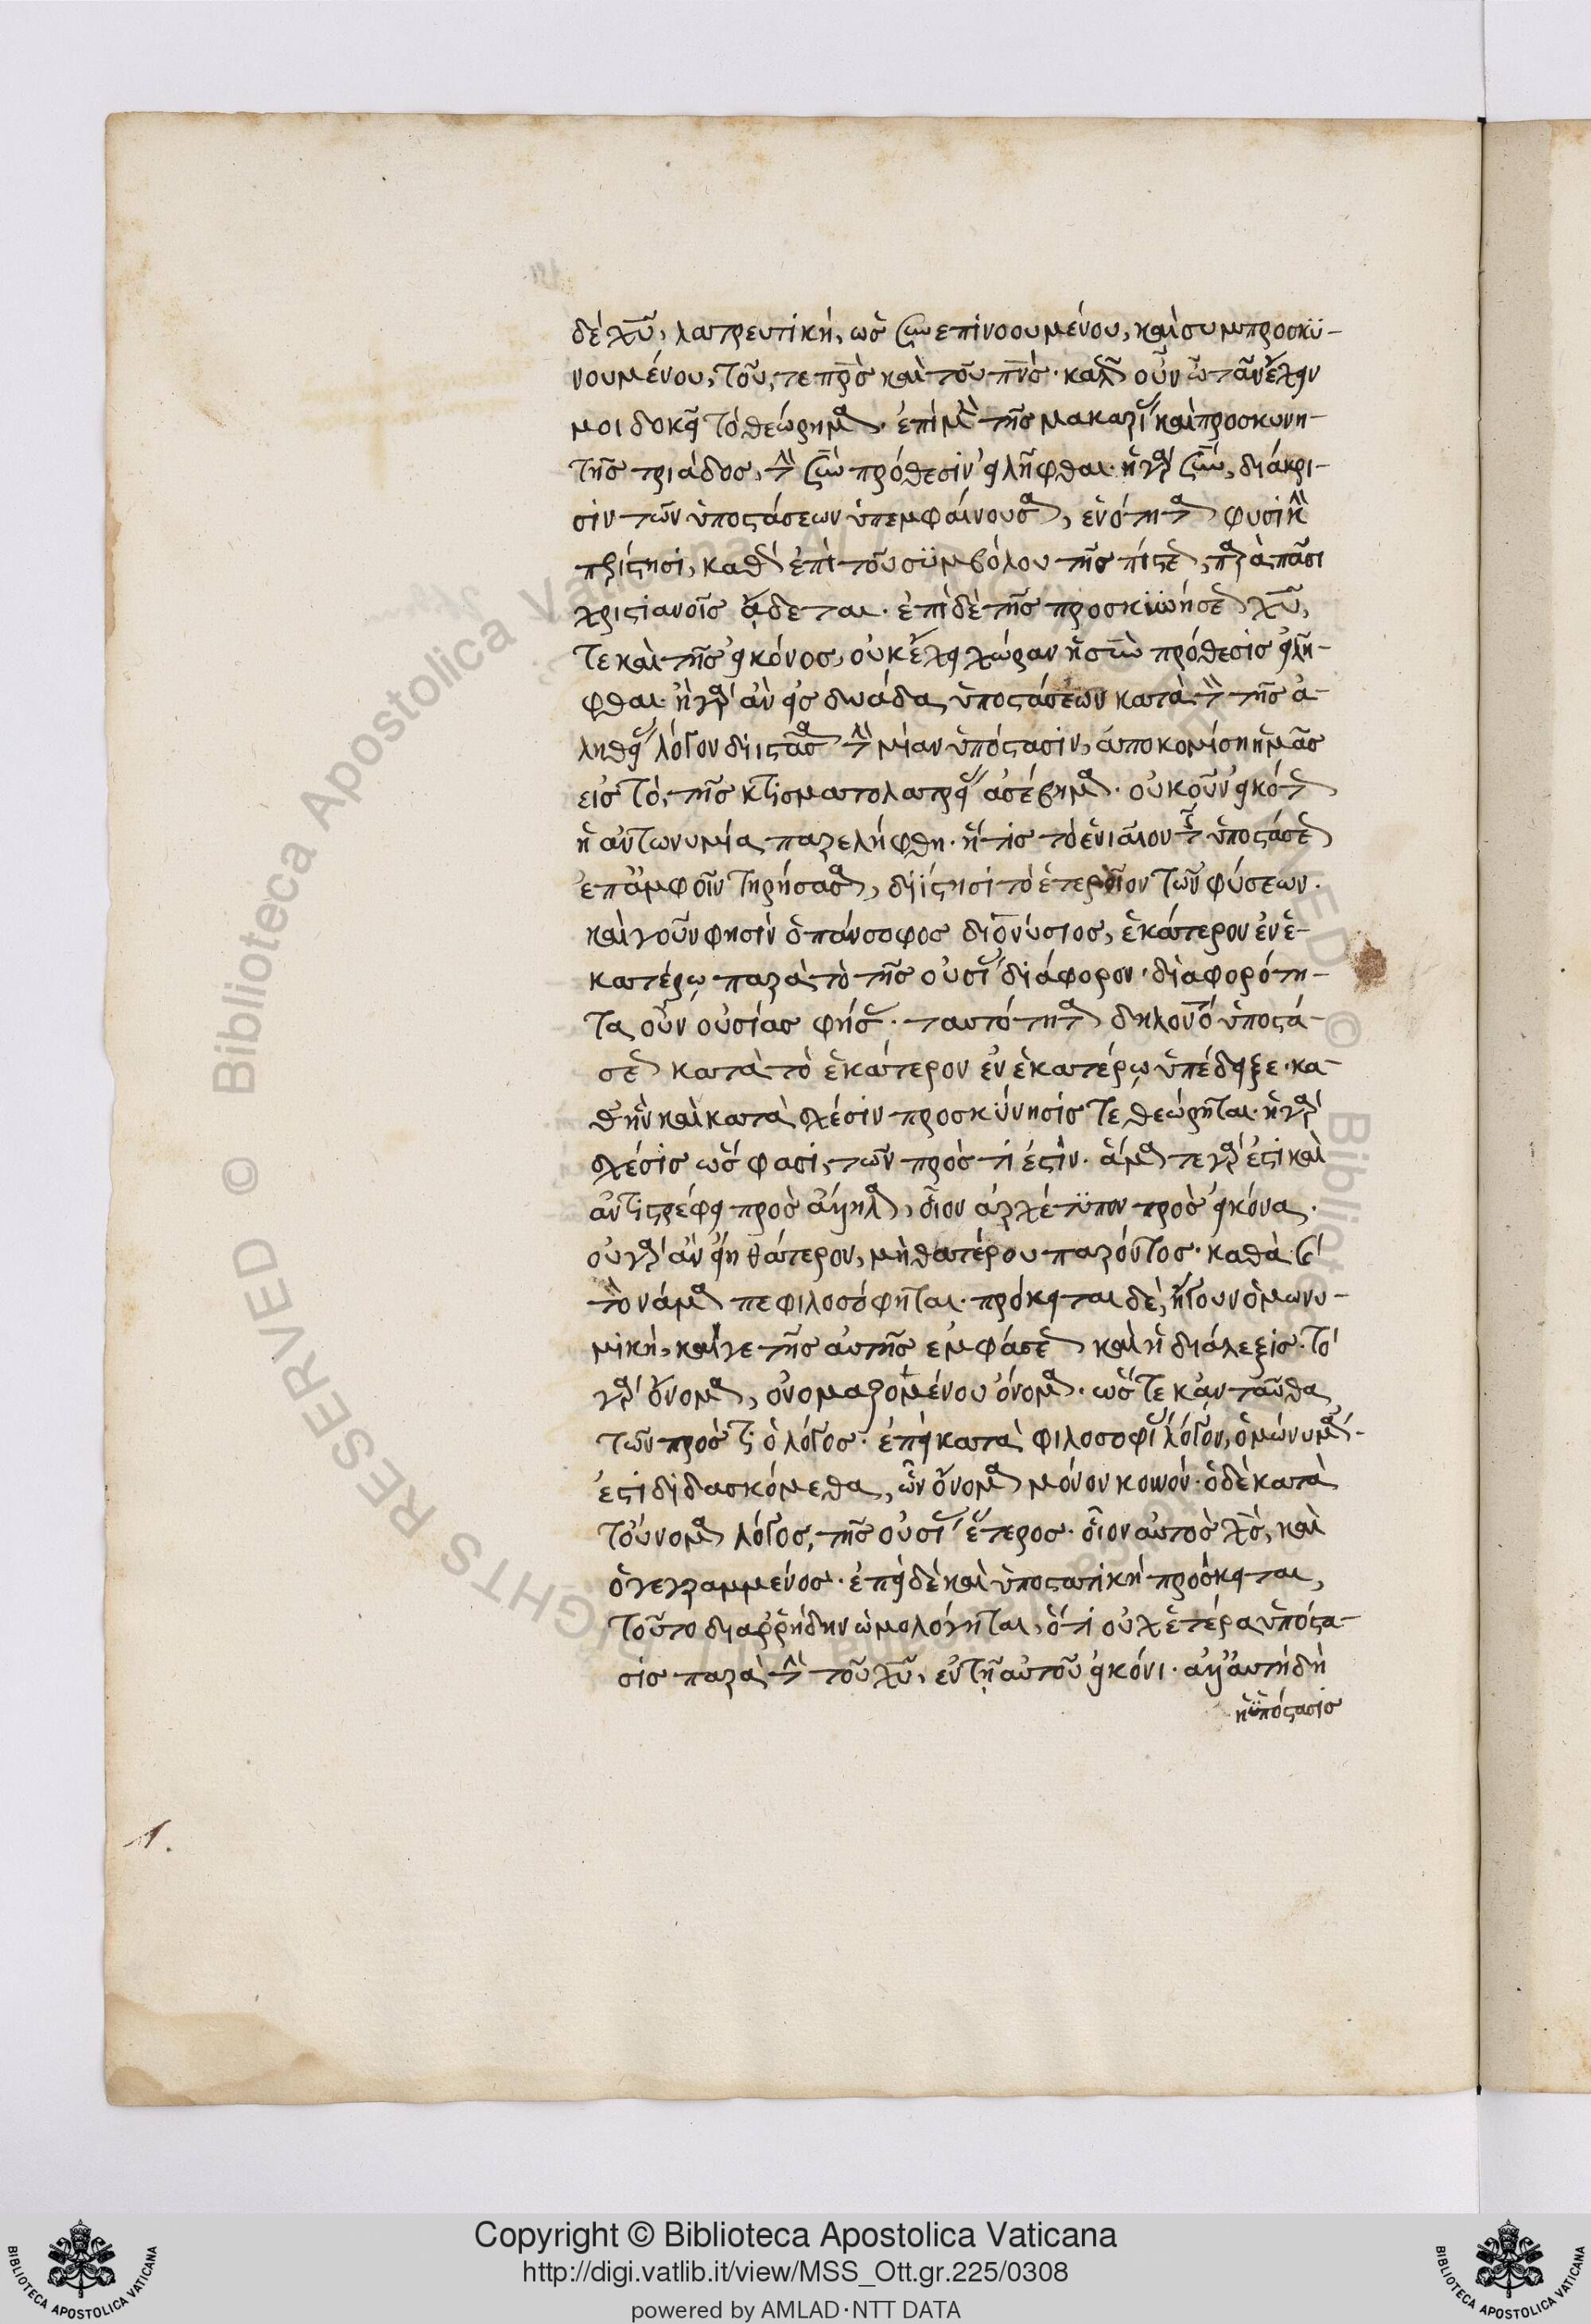 δὲ χῦ, λατρευτικὴ, ὡς συνεπινοουμένου, καὶ συμπροσκϋ-
νουμένου, τοῦ, τε πρς καὶ τοῦ πνς. καλῶς οὖν ὦ τᾶν ἔχειν
μοι δοκεῖ τὸ θεώρημα. ἐπὶ μὲν τῆς μακαρίας καὶ προσκυνη-
τῆς τριάδος, τὴν σὺν πρόθεσιν εἰλῆφθαι. ἡ γὰρ σὺν, διάκρι-
σιν τῶν ὑποστάσεων ὑπεμφαίνουσα, ἑνότητα φυσικὴν
παρίστησι, καθὰ ἐπὶ τοῦ συμβόλου τῆς πίστεως, παρὰ πᾶσι
χριστιανοῖς ᾄδεται. ἐπὶ δὲ τῆς προσκυνήσεως χῦ,
τε καὶ τῆς εἰκόνος, οὐκ ἔχει χώραν ἡ σὺν πρόθεσις εἰλῆ-
φθαι. ἡ γὰρ ἂν εἰς δυάδα ὑποστάσεων κατὰ τὸν τῆς ἀ-
ληθείας λόγον διιστᾶσα τὴν μίαν ὑπόστασιν, ἀποκομίσῃ ἡμᾶς
εἰς τὸ, τῆς κτισματολατρείας ἀσέβημα. οὐκοῦν εἰκότως
ἡ ἀντωνυμία παρελήφθη. ἥτις τὸ ἑνιαῖον τῆς ὑποστάσεως
ἐπ' ἀμφοῖν τηρήσασα, διίστησι τὸ ἑτεροῖον τῶν φύσεων.
καὶ γοῦν φησὶν ὁ πάνσοφος διονύσιος, ἑκάτερον ἐν ἑ-
κατέρῳ παρὰ τὸ τῆς οὐσίας διάφορον. διαφορότη-
τα οὖν οὐσίας φήσας. ταυτότητα δηλονότι ὑποστά-
σεως κατὰ τὸ ἑκάτερον ἐν ἑκατέρῳ ὑπέδειξε. κα-
θ' ἣν καὶ κατὰ σχέσιν προσκύνησίς τε θεώρηται. ἡ γὰρ
σχέσις ὥς φασι, τῶν πρός τί ἐστιν. ἅμα τε γάρ ἐστι καὶ
ἀντιστρέφει πρὸς ἄλληλα, οἷον ἀρχέτυπον πρὸς εἰκόνα.
οὐ γὰρ ἂν εἴη θάτερον, μὴ θατέρου παρόντος. καθὰ καὶ
τὸν ἅμα πεφιλοσόφηται. πρόκειται δὲ, ἤγουν ὁμωνυ-
μικὴ, καί γε τῆς αὐτῆς ἐμφάσεως καὶ ἡ διάλεξις. τὸ
γὰρ ὄνομα, ὀνομαζομένου ὄνομα. ὥς τε κἀνταῦθα
τῶν πρός τι ὁ λόγος. ἐπεὶ κατὰ φιλοσοφίας λόγον, ὁμώνυμά
ἐστι διδασκόμεθα, ὧν ὄνομα μόνον κοινόν. ὁ δὲ κατὰ
τοὔνομα λόγος, τῆς οὐσίας ἕτερος. οἷον αὐτὸς χς, καὶ
ὁ γεγραμμένος. ἐπεὶ δὲ καὶ ὑποστατικὴ πρόσκειται,
τοῦτο διαρρήδην ὡμολόγηται, ὅτι οὐχ ἑτέρα ὑπόστα-
σις παρὰ τὴν τοῦ χῦ, ἐν τῇ αὐτοῦ εἰκόνι. ἀλλ' αὐτὴ δὴ
ἡ ὑπόστασις
1.
Copyright © Biblioteca Apostolica Vaticana
http://digi.vatlib.it/view/MSS_Ott.gr.225/0308
powered by AMLAD·NTT DATA